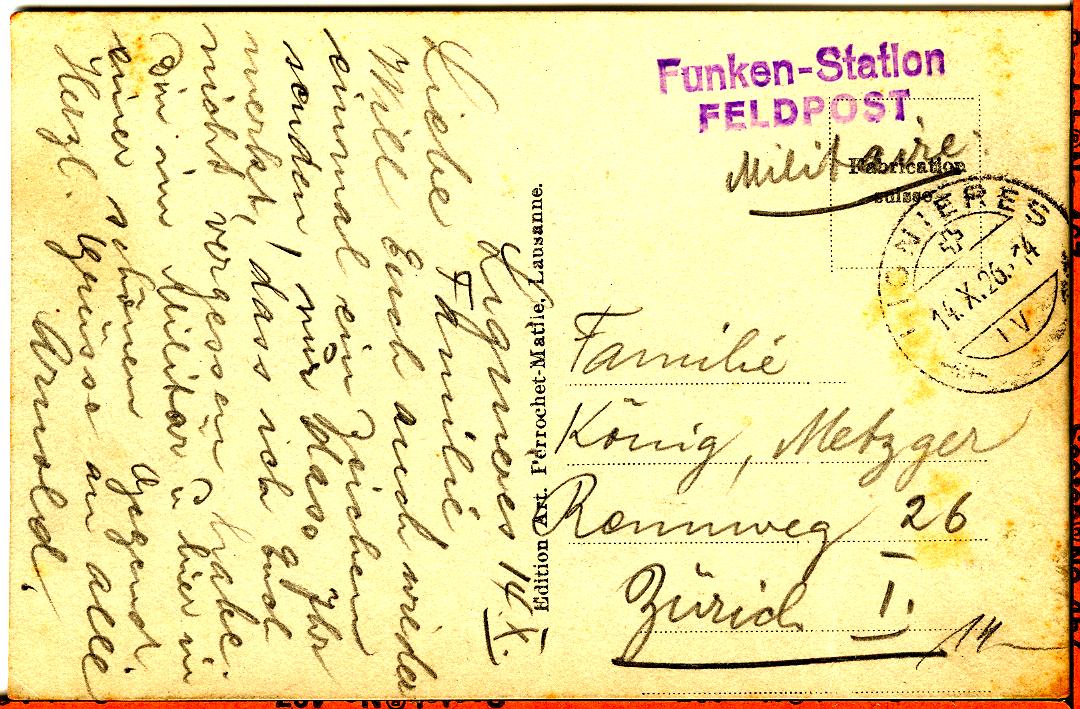 Lignieres 14.X.
Liebe Familie
Will Euch auch wieder
einmal ein Zeichen
senden, nur dass Ihr
merkt, dass ich Euch
nicht vergessen habe.
Bin im Militär u hier in
einer schönen Gegend.
Herzl. Grüsse an alle
Arnold.
Edition Art. Perrochet-Matile, Lausanne.
Funken-Station
FELDPOST
Militaire.
Fabrication
suisse
NIERES
14.X.26.-14
IV
Familie
König, Metzger
Rennweg 26
Zürich I.